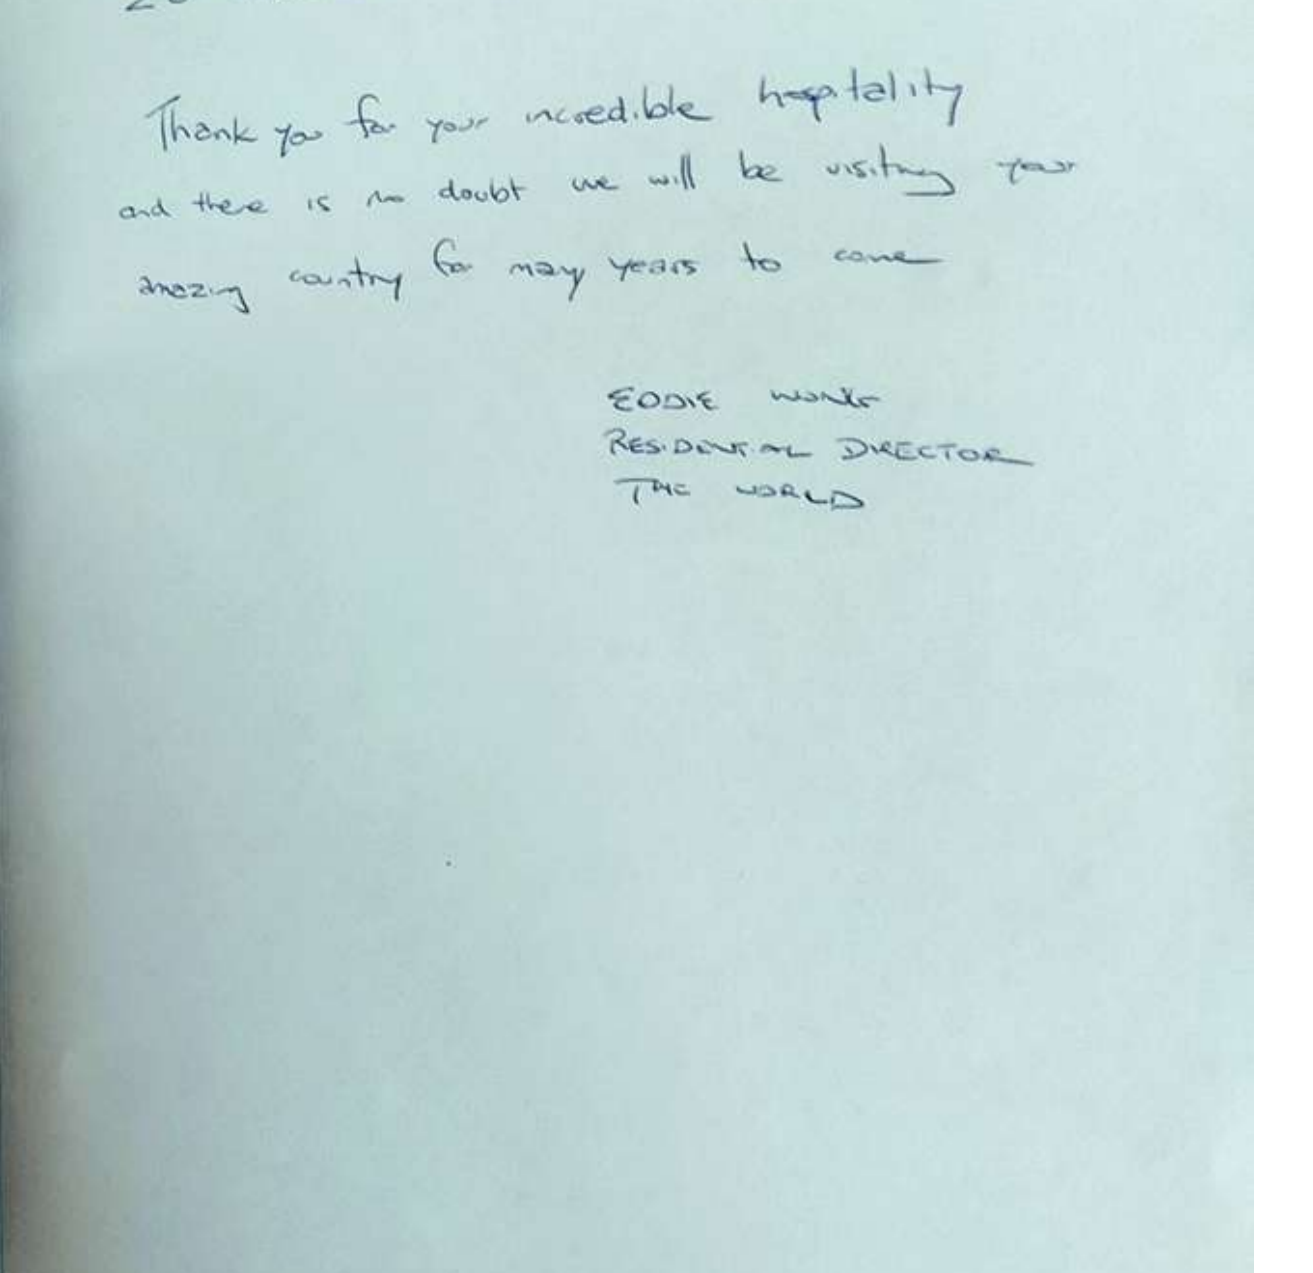 Thank you for your incredible hospitality
and there is no doubt we will be visiting your
amazing country for many years to come
EDDIE
RESIDENTIAL DIRECTOR
THE WORLD